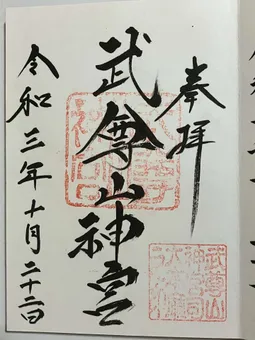 奉拝
武尊山神宮
令和三年十月二十二日